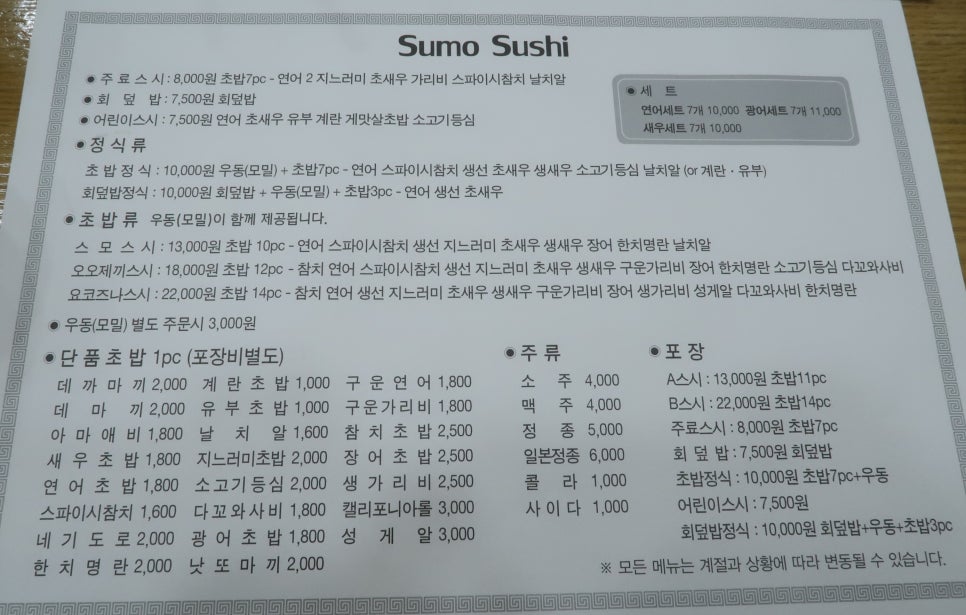 Sumo Sushi
● 주 료 스 시 : 8,000원 초밥7pc - 연어 2 지느러미 초새우 가리비 스파이시참치 날치알
● 회 덮 밥 : 7,500원 회덮밥
● 어린이스시 : 7,500원 연어 초새우 유부 계란 게맛살초밥 소고기등심
● 세 트
연어세트 7개 10,000 광어세트 7개 11,000
새우세트 7개 10,000
● 정 식 류
초 밥 정 식 : 10,000원 우동(모밀) + 초밥7pc - 연어 스파이시참치 생선 초새우 생새우 소고기등심 날치알 (or 계란 · 유부)
회덮밥정식 : 10,000원 회덮밥 + 우동(모밀) + 초밥3pc - 연어 생선 초새우
● 초 밥 류 우동(모밀)이 함께 제공됩니다.
스 모 스 시 : 13,000원 초밥 10pc - 연어 스파이시참치 생선 지느러미 초새우 생새우 장어 한치명란 날치알
오오제끼스시 : 18,000원 초밥 12pc - 참치 연어 스파이시참치 생선 지느러미 초새우 생새우 구운가리비 장어 한치명란 소고기등심 다꼬와사비
요코즈나스시 : 22,000원 초밥 14pc - 참치 연어 생선 지느러미 초새우 생새우 구운가리비 장어 생가리비 성게알 다꼬와사비 한치명란
● 우동(모밀) 별도 주문시 3,000원
● 단 품 초 밥 1pc (포장비별도)
데 까 마 끼 2,000 계 란 초 밥 1,000 구 운 연 어 1,800
데 마 끼 2,000 유 부 초 밥 1,000 구운가리비 1,800
아 마 애 비 1,800 날 치 알 1,600 참 치 초 밥 2,500
새 우 초 밥 1,800 지느러미초밥 2,000 장 어 초 밥 2,500
연 어 초 밥 1,800 소고기등심 2,000 생 가 리 비 2,500
스파이시참치 1,600 다꼬와사비 1,800 캘리포니아롤 3,000
네 기 도 로 2,000 광 어 초 밥 1,800 성 게 알 3,000
한 치 명 란 2,000 낫 또 마 끼 2,000
● 주 류
소 주 4,000
맥 주 4,000
정 종 5,000
일본정종 6,000
콜 라 1,000
사 이 다 1,000
● 포 장
A스시 : 13,000원 초밥11pc
B스시 : 22,000원 초밥14pc
주료스시 : 8,000원 초밥7pc
회 덮 밥 : 7,500원 회덮밥
초밥정식 : 10,000원 초밥7pc+우동
어린이스시 : 7,500원
회덮밥정식 : 10,000원 회덮밥+우동+초밥3pc
※ 모든 메뉴는 계절과 상황에 따라 변동될 수 있습니다.